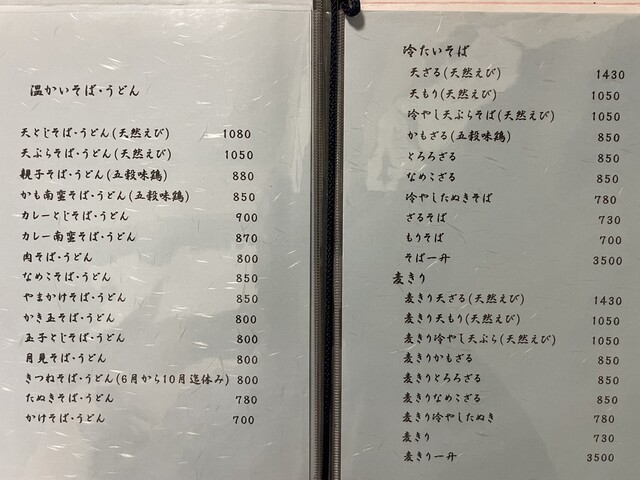 温かいそば・うどん
天とじそば・うどん(天然えび) 1080
天ぷらそば・うどん(天然えび) 1050
親子そば・うどん(五穀味鶏) 880
かも南蛮そば・うどん(五穀味鶏) 850
カレーとじそば・うどん 900
カレー南蛮そば・うどん 870
肉そば・うどん 800
なめこそば・うどん 850
やまかけそば・うどん 850
かき玉そば・うどん 800
玉子とじそば・うどん 800
月見そば・うどん 800
きつねそば・うどん(6月から10月迄休み) 800
たぬきそば・うどん 780
かけそば・うどん 700
冷たいそば
天ざる(天然えび) 1430
天もり(天然えび) 1050
冷やし天ぷらそば(天然えび) 1050
かもざる(五穀味鶏) 850
とろろざる 850
なめこざる 850
冷やしたぬきそば 780
ざるそば 730
もりそば 700
そば一升 3500
麦きり
麦きり天ざる(天然えび) 1430
麦きり天もり(天然えび) 1050
麦きり冷やし天ぷら(天然えび) 1050
麦きりかもざる 850
麦きりとろろざる 850
麦きりなめこざる 850
麦きり冷やしたぬき 780
麦きり 730
麦きり一升 3500